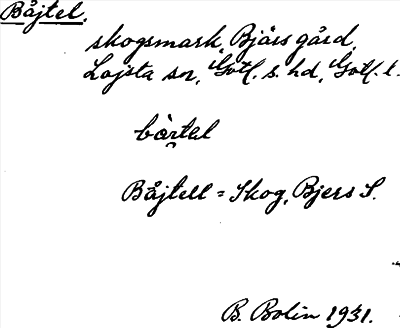 Båjtel.
skogsmark, Bjärs gård,
Lojsta sn, Gotl. s. hd, Gotl. l.
bàrtal
Båjtell = Skog, Bjers S.
B. Bolin 1931.